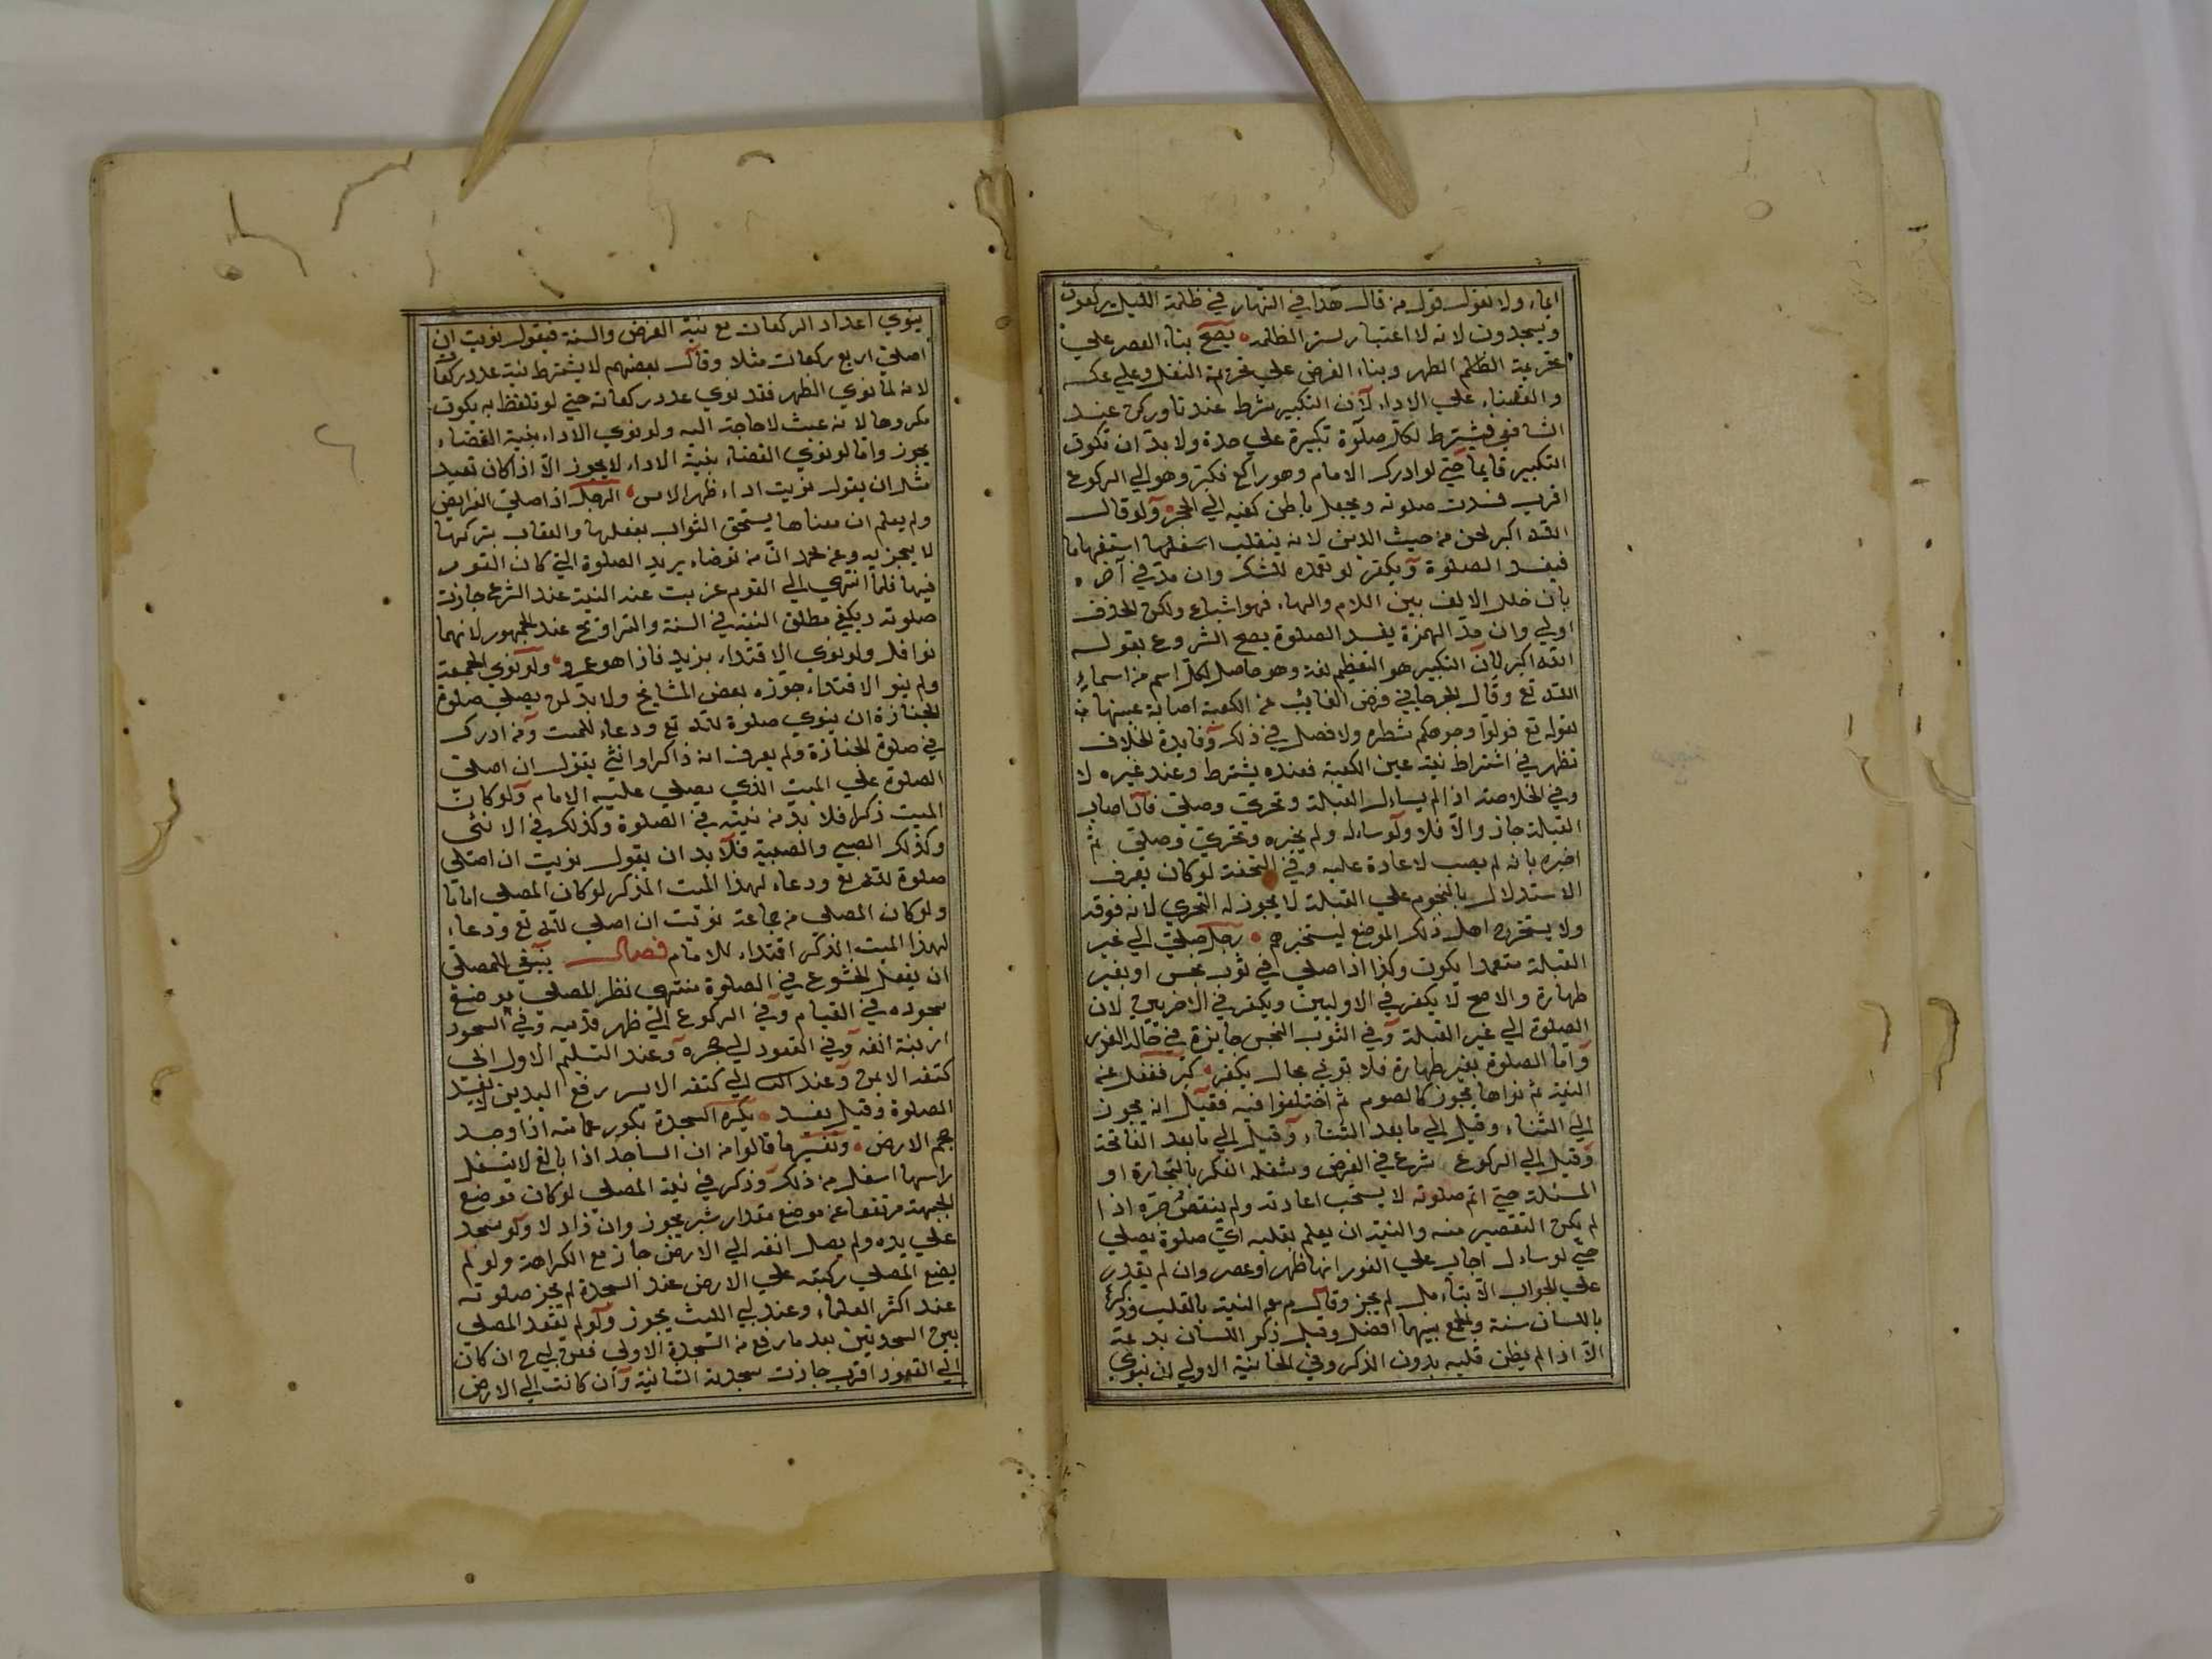 ايماء ولا نقول قول من قال هذا في النهار في ظلمة الليل يركعون
ويسجدون لانه لا اعتبار لستر الظلمة يصح بناء العصر علي
تحريمة الظهر وبناء الفرض علي تحريمة النفل وعلي عكسه
والقضاء علي الاداء لان التكبير شرط عندنا وركن عند
الشافعي فيشترط لكل صلوة تكبيرة علي حدة ولا بد ان تكون
التكبير قايما حتي لو ادرك الامام وهو راكع فكبر وهو الي الركوع
اقرب فسدت صلوته ويجعل باطن كفيه الي ولو قال
الله اكبر لحن من حيث الدين لانه ينقلب استفهاما
فيفسد الصلوة ويكفر لو تعمده للشك وان مد في آخره
بان خلل الالف بين اللام والهاء فهو اشباع ولكن الحذف
اولي وان مد الهمزة يفسد الصلوة يصح الشروع بقوله
الله اكبر لان التكبير هو التعظيم لغة وهو حاصل لكل اسم من اسماء
الله تع وقال الجرجاني فرض الغائب عن الكعبة اصابة عينها
لقوله تع فولوا وجوهكم شطره ولا فصل في ذلك وفايدة الخلاف
تظهر في اشتراط نية عين الكعبة فعنده يشترط وعند غيره لا
وفي الخلاصة اذا لم يسال القبلة وتحري وصلي فان اصاب
القبلة جاز والا فلا ولو ساله ولم يخبره وتحري وصلي ثم
اخبره بانه لم يصب لا عادة عليه وفي التحفة لو كان يعرف
الاستدلال بالنجوم علي القبلة لا يجوز له التحري لانه فوقه
ولا يستخرج اهل ذلك الموضع ليستخبرهم رجل صلي الي غير
القبلة متعمدا يكون وكذا اذا صلي في ثوب نجس او بغير
طهارة والاصح لا يكفر في الاوليين ويكفر في الاخريين لان
الصلوة الي غير القبلة وفي الثوب النجس جايزة في حالة العذر
واما الصلوة بغير طهارة فلا توتي بحال يكفر كبر فغفل عن
النية ثم نواها يجوز كالصوم ثم اختلفوا فيه فقيل انه يجوز
الي الثناء وقيل الي ما بعد الثناء وقيل الي ما بعد الفاتحة
وقيل الي الركوع شرع في الفرض وشغله الفكر بالتجارة او
المسئلة حتي اتم صلوته لا يستحب اعادته ولم ينقص اجره اذا
لم يكن التقصير منه والنية ان يعلم بقلبه اي صلوة يصلي
حتي لو سال اجاب علي الفور انها ظهر او عصر وان لم يقدر
علي الجواب الا بتامل لم يجز وقال النية بالقلب وذكره
باللسان سنة والجمع بينهما افضل وقيل ذكر اللسان بدعة
الا اذا لم يطمئن قلبه بدون الذكر وفي الخانية الاولي ان ينوي
ينوي اعداد الركعات مع نية الفرض والسنة فيقول نويت ان
اصلي اربع ركعات مثلا وقال بعضهم لا يشترط نية عدد ركعات
لانه لما نوي الظهر فقد نوي عدد ركعاته حتي لو تلفظ به يكون
مكروها لانه عبث لا حاجة اليه ولو نوي الاداء بنية القضاء
يجوز واما لو نوي القضاء بنية الاداء لا يجوز الا اذا كان تعيد
مثل ان يقول نويت اداء ظهر الامس الرجل اذا صلي الفرايض
ولم يعلم ان معناها يستحق الثواب بفعلها والعقاب بتركها
لا يجزيه وعن محمد ان من توضاء يريد الصلوة التي كان القوم
فيها فلما انتهي الي القوم عزبت عند النية عند الشرع جازت
صلوته ويكفي مطلق النية في السنة والتراويح عند الجمهور لانهما
نوافل ولو نوي الاقتداء بزيد فاذا هو عمرو ولو نوي الجمعة
ولم ينو الاقتداء جوزه بعض المشايخ ولا بد لمن يصلي صلوة
الجنازة ان ينوي صلوة لله تع ودعاء للميت ومن ادرك
في صلوة الجنازة ولم يعرف انه ذاكرا وانثي يقول ان اصلي
الصلوة علي الميت الذي يصلي عليه الامام ولو كان
الميت ذكرا فلا بد من نيته في الصلوة وكذلك في الانثي
وكذلك الصبي والصبية فلا بد ان يقول نويت ان اصلي
صلوة لله تع ودعاء لهذا الميت المذكر لو كان المصلي اماما
ولو كان المصلي من جماعة نويت ان اصلي لله تع ودعاء
لهذا الميت الذكر اقتداء للامام فصل ينبغي للمصلي
ان يفعل الخشوع في الصلوة منتهي نظر المصلي موضع
سجوده في القيام وفي الركوع الي ظهر قدميه وفي السجود
ارنبة انفه وفي القعود الي حجره وعند التسليم الاول الي
كتفه الايمن وعند الي كتفه الايسر رفع اليدين لا يفسد
الصلوة وقيل يفسد يكره السجدة بكور عمامته اذا وجد
حجم الارض وتفسير ما قالوا من ان الساجد اذا بالغ لا يتسفل
راسها اسفل من ذلك وذكر في نية المصلي لو كان موضع
الجبهة مرتفعا عن موضع مقدار شبر يجوز وان زاد لا ولو سجد
علي يده ولم يصل انفه الي الارض جاز مع الكراهة ولو لم
يضع المصلي ركبته علي الارض عند السجدة لم يجز صلوته
عند اكثر العلماء وعند ابي الليث يجوز ولو لم يقعد المصلي
بين السجدتين بعد ما رفع من السجدة الاولي فعن ابي ح ان كان
الي القعود اقرب جازت سجدته الثانية وان كانت الي الارض